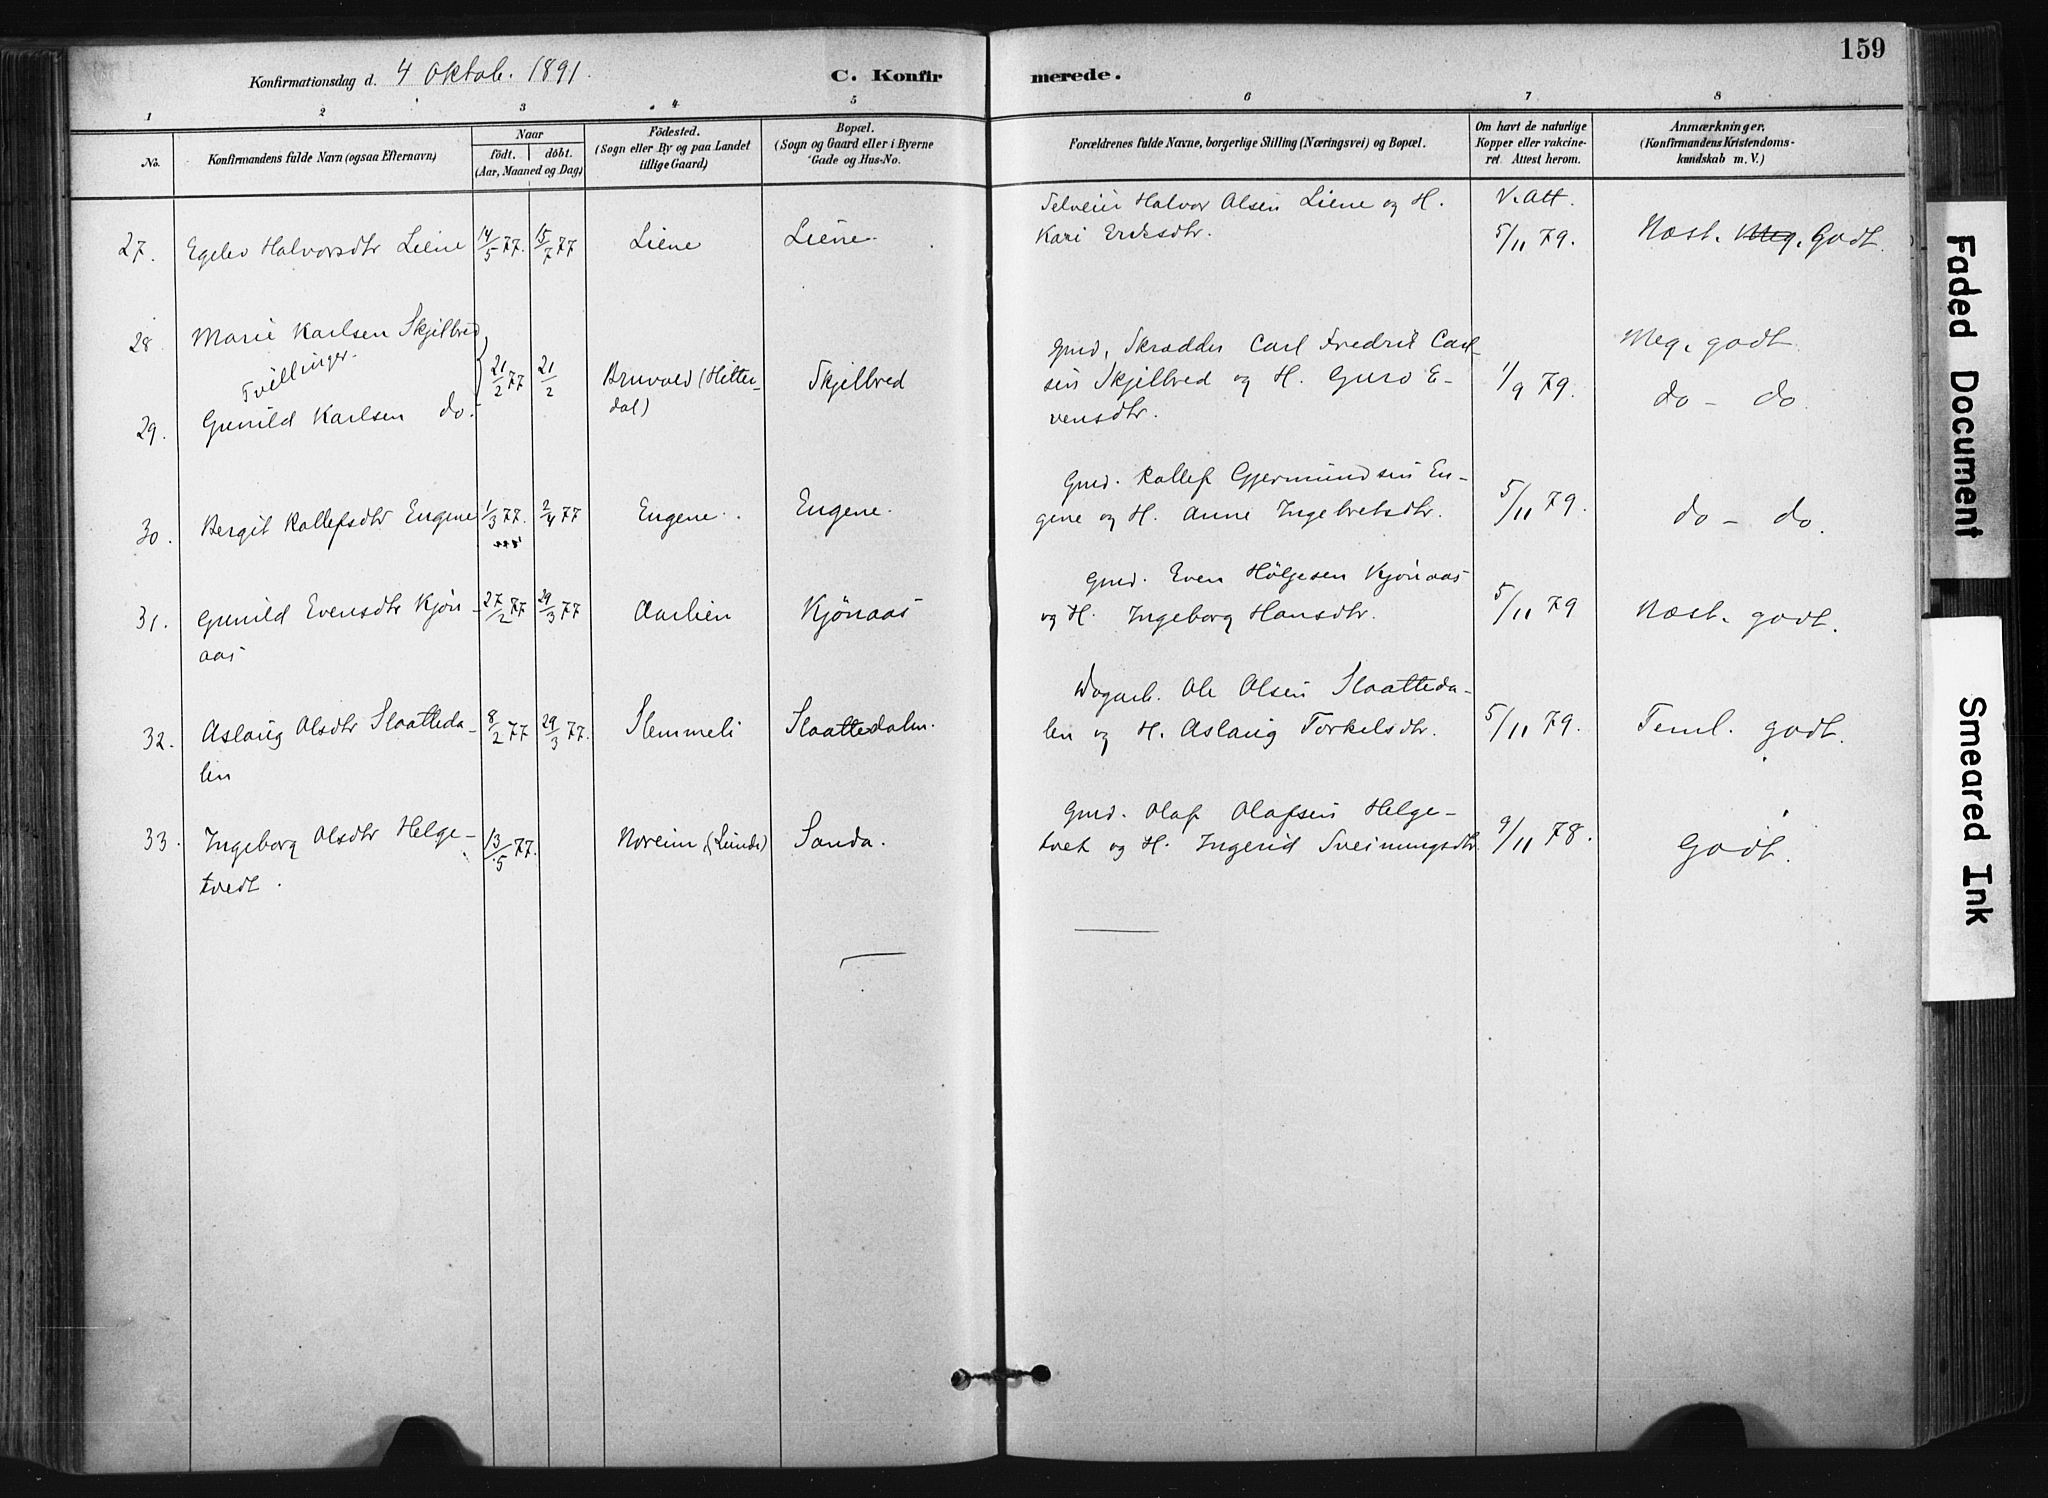 159
Konfirmationsdag d. 4 Oktob. 1891.
C. Konfirmerede.
1 2 3 4 5 6 7 8
No.
Konfirmandens fulde Navn (ogsaa Efternavn)
Naar
født. døbt.
(Aar, Maaned og Dag)
Födested.
(Sogn eller By og paa Landet
tillige Gaard)
Bopæl.
(Sogn og Gaard eller i Byerne
Gade og Hus-No.
Forældrenes fulde Navne, borgerlige Stilling (Næringsvei) og Bopæl.
Om havt de naturlige
Kopper eller vakcine-
ret Attest herom.
Anmærkninger.
(Konfirmandens Kristendoms-
kundskab m. V.)
27. Egelev Halvorsdtr Liene 14/5 77. 15/7 77 Liene Liene.
Selveier Halvor Olsen Liene og H.
Kari Eriksdtr.
V. Att.
5/11 79.
Næst. Meg. Godt.
28 Marie Karlsen Skjelbred
Tvillinger.
29. Gunild Karlsen do.
21/2 77 21/2
Bruvold (Hitter-
dal)
Skjelbred
Gmd, Skrædder Carl Fredrik Carl-
sen Skjelbred og H. Guro E-
vensdtr.
1/9 79.
Meg. godt
do - do
30. Bergit Rollefsdtr Engene 1/3 77. 2/4 77 Engene. Engene.
Gmd. Rollef Gjermundsen En-
gene og H. Anne Ingebretsdtr.
5/11 79.
do - do.
31. Gunild Evensdtr Kjön-
aas
27/2 77 29/3 77 Aarlien Kjönaas
Gmd. Even Hölgesen Kjönaas
og H. Ingeborg Hansdtr.
5/11 79
Næst. godt.
32. Aslaug Olsdtr Slaatteda-
len
8/2 77 29/3 77. Slemmeli Slaattedalen.
Dagarb. Ole Olsen Slaatteda-
len og H. Aslaug Torkelsdtr.
5/11 79.
Teml. godt.
33. Ingeborg Olsdtr Helge-
tvedt.
13/5 77. Noreim (Lunde) Sanda.
Gmd. Olaf Olafsen Helge-
tvet og H. Ingerid Sveinungsdtr.
9/11 78.
Godt.
Faded Document
Smeared Ink